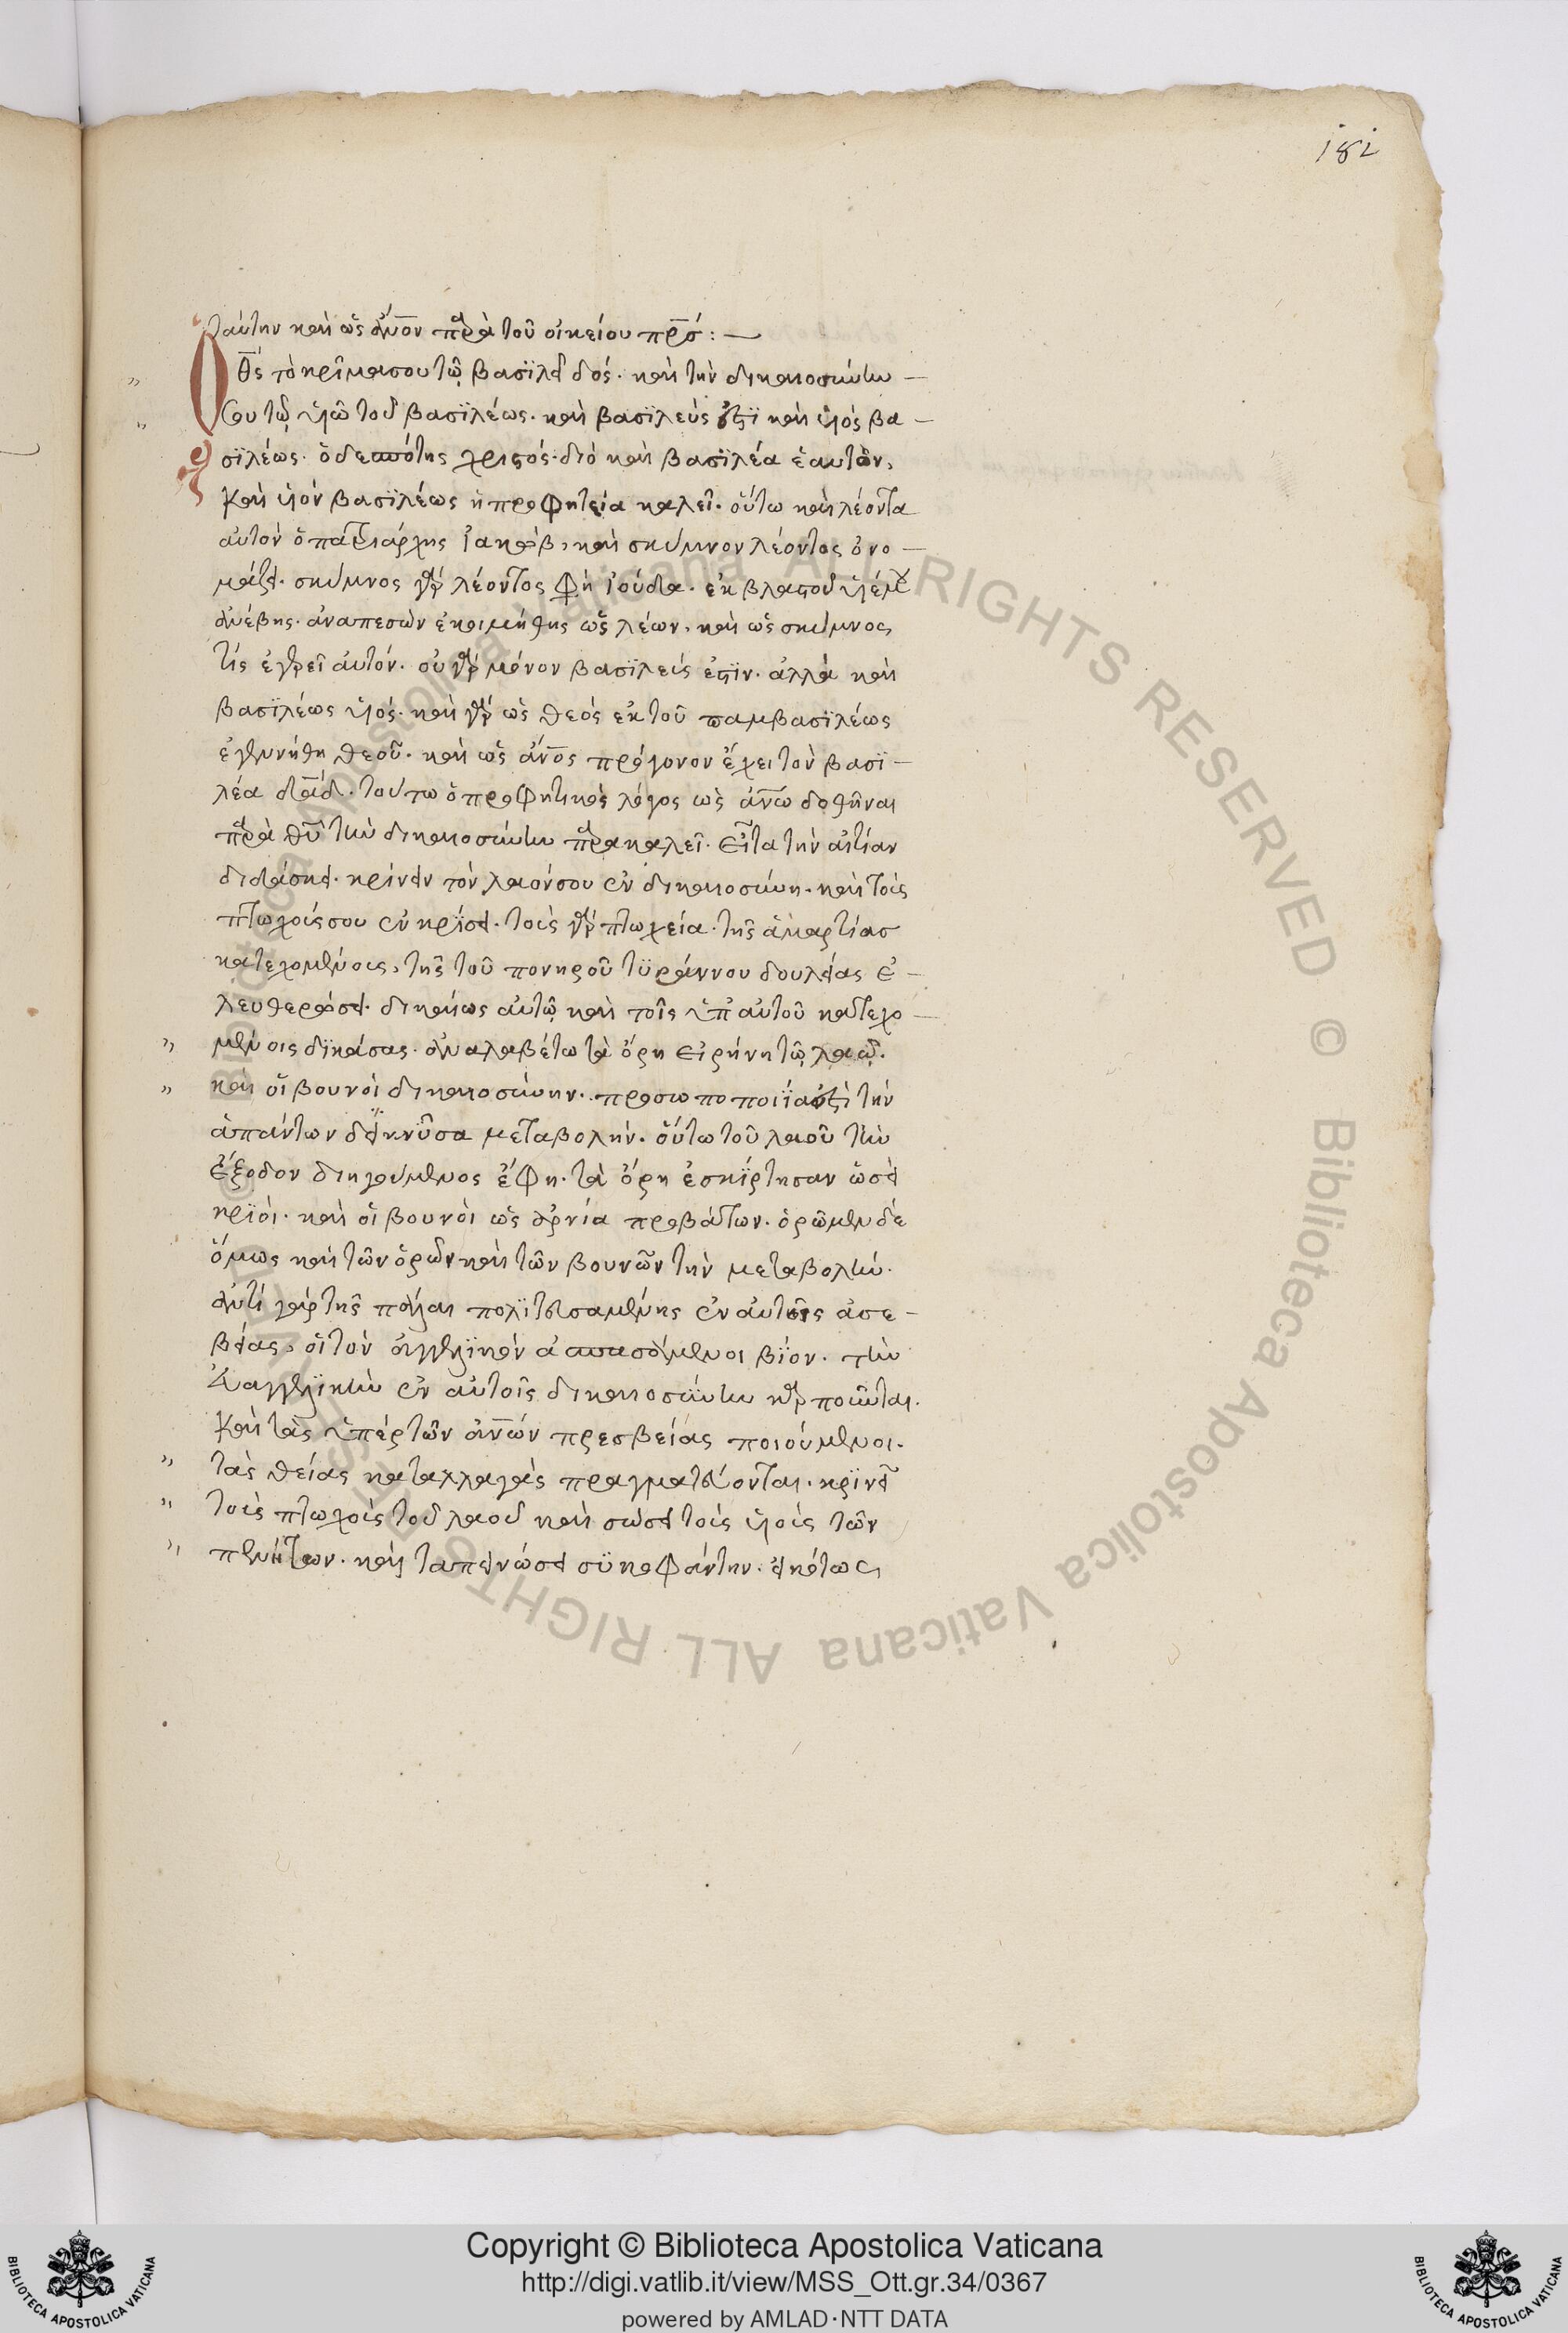 182
ταύτην καὶ ὡς ἄνον παρὰ τοῦ οἰκείου πρσ : —
Ὁ θς τὸ κρῖμα σου τῷ βασϊλεῖ δός· καὶ τὴν δικαιοσύνην
σου τῷ υἱῶ τοῦ βασϊλέως· καὶ βασϊλεύς ἐστϊ καὶ υἱὸς βα-
σϊλέως· ὁ δεσπότης χριστός· διὸ καὶ βασϊλέα ἑαυτὸν,
καὶ υἱὸν βασϊλέως ἡ προφητεία καλεῖ· οὕτω καὶ λέοντα
αὐτὸν ὁ πατριάρχης ἰακὼβ, καὶ σκύμνον λέοντος ὀνο-
μάζει· σκύμνος γὰρ λέοντος φη ἰούδα· ἐκ βλαστοῦ υἱέ μου
ἀνέβης· ἀναπεσὼν ἐκοιμήθης ὡς λέων, καὶ ὡς σκύμνος,
τίς ἐγερεῖ αὐτόν· οὐ γὰρ μόνον βασϊλεύς ἐστϊν· ἀλλὰ καὶ
βασϊλέως υἱός· καὶ γὰρ ὡς θεὸς ἐκ τοῦ παμβασϊλέως
ἐγεννήθη θεοῦ· καὶ ὡς ἄνος πρόγονον ἔχει τὸν βασϊ-
λέα δαδ· τούτω ὁ προφητικὸς λόγος ὡς ἀνω δοθῆναι
παρὰ θυ τὴν δικαιοσύνην παρακαλεῖ· εἶτα τὴν αἰτίαν
διδάσκει· κρίνειν τὸν λαόν σου ἐν δικαιοσύνη· καὶ τοὺς
πτωχούς σου ἐν κρίσει· τοὺς γὰρ πτωχεία τῆς ἁμαρτίασ
κατεχομένους, τῆς τοῦ πονηροῦ τϋράννου δουλείας ἐ-
λευθερώσει· δικαίως αὐτῷ καὶ τοῖς ὑπ' αὐτοῦ κατεχο-
μένοις δϊκάσας· ἀναλαβέτω τὰ ὄρη εἰρήνη τῷ λαῷ·
καὶ οἱ βουνοὶ δικαιοσύνην· προσωποποιΐα ἐστὶ τὴν
ἁπάντων δεικνῦσα μεταβολήν· οὕτω τοῦ λαοῦ τὴν
ἔξοδον διηγούμενος ἔφη· τὰ ὄρη ἐσκίρτησαν ὡσεὶ
κρϊοὶ· καὶ οἱ βουνοὶ ὡς ἀρνία προβάτων· ὁρῶμεν δὲ
ὅμως καὶ τῶν ὀρῶν καὶ τῶν βουνῶν τὴν μεταβολήν·
ἀντὶ γὰρ τῆς πάλαι πολϊτευσαμένης ἐν αὐτοῖς ἀσε-
βείας, οἱ τὸν ἀγγελϊκὸν ἀσπασάμενοι βϊον· τὴν
εὐαγγελϊκὴν ἐν αὐτοῖς δικαιοσύνην κηρ ποιοῦνται·
καὶ τὰς ὑπὲρ τῶν ἀνών πρεσβείας ποιούμενοι·
τὰς θείας καταλλαγὰς πραγματεύονται· κρϊνεῖ
τοὺς πτωχοὺς τοῦ λαοῦ καὶ σώσει τοὺς υἱοὺς τῶν
πενήτων· καὶ ταπεινώσει σϋκοφάντην· εἰκότως,
Copyright © Biblioteca Apostolica Vaticana
http://digi.vatlib.it/view/MSS_Ott.gr.34/0367
powered by AMLAD·NTT DATA
BIBLIOTECA APOSTOLICA VATICANA
BIBLIOTECA APOSTOLICA VATICANA
© Biblioteca Apostolica Vaticana ALL RIGHTS RESERVED © Biblioteca Apostolica Vaticana ALL RIGHTS RESERVED